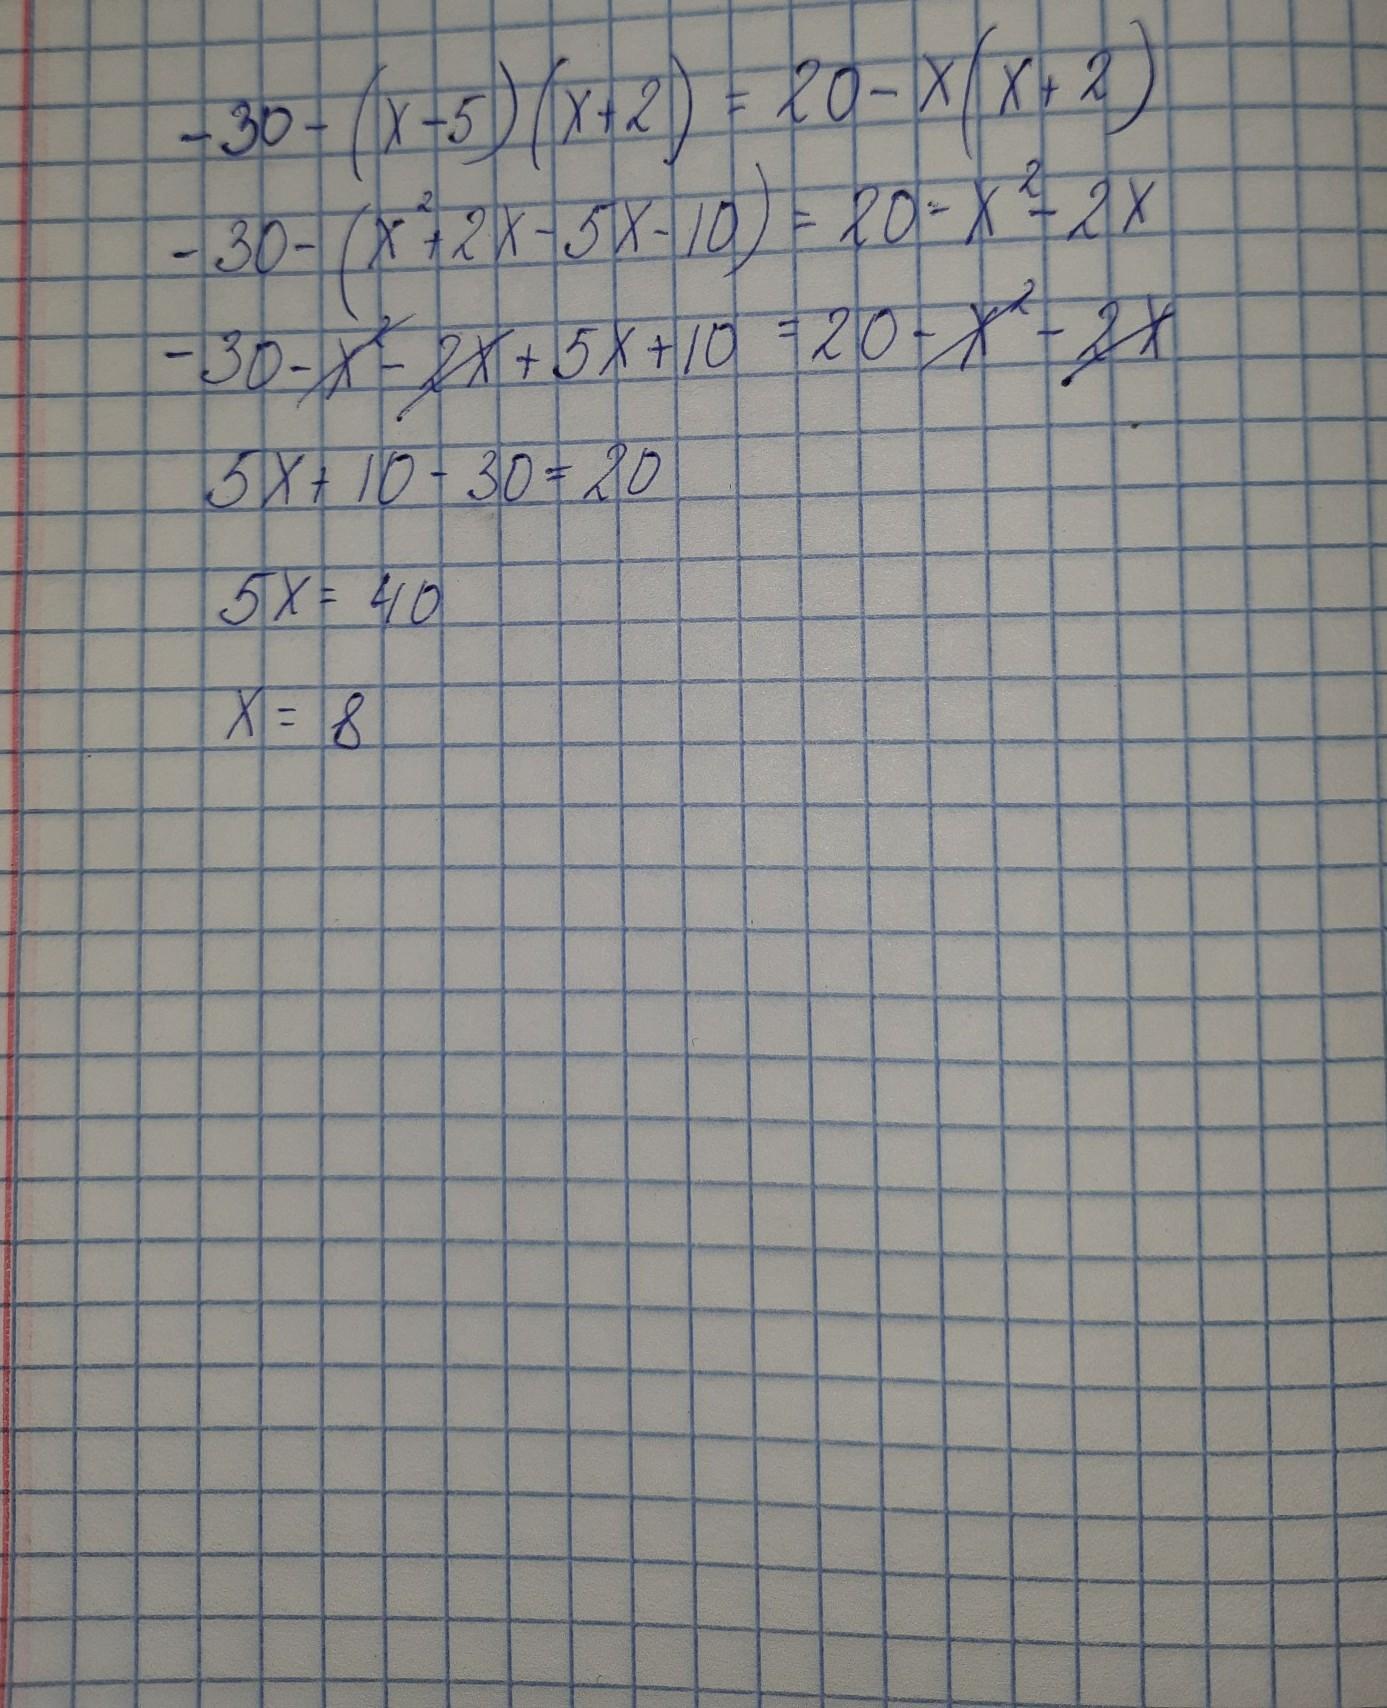 -30-(x-5)(x+2)=20-x(x+2)
-30-(x²+2x-5x-10)=20-x²-2x
-30-x²-2x+5x+10=20-x²-2x
5x+10-30=20
5x=40
x=8